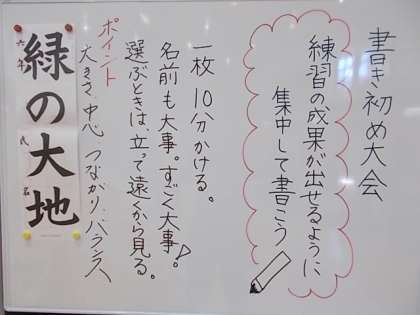 書き初め大会
練習の成果が出せるように
集中して書こう
一枚10分かける。
名前も大事。すごく大事!
選ぶときは、立って遠くから見る。
ポイント
大きさ、中心、つながり、バランス
緑の大地
六年
氏名